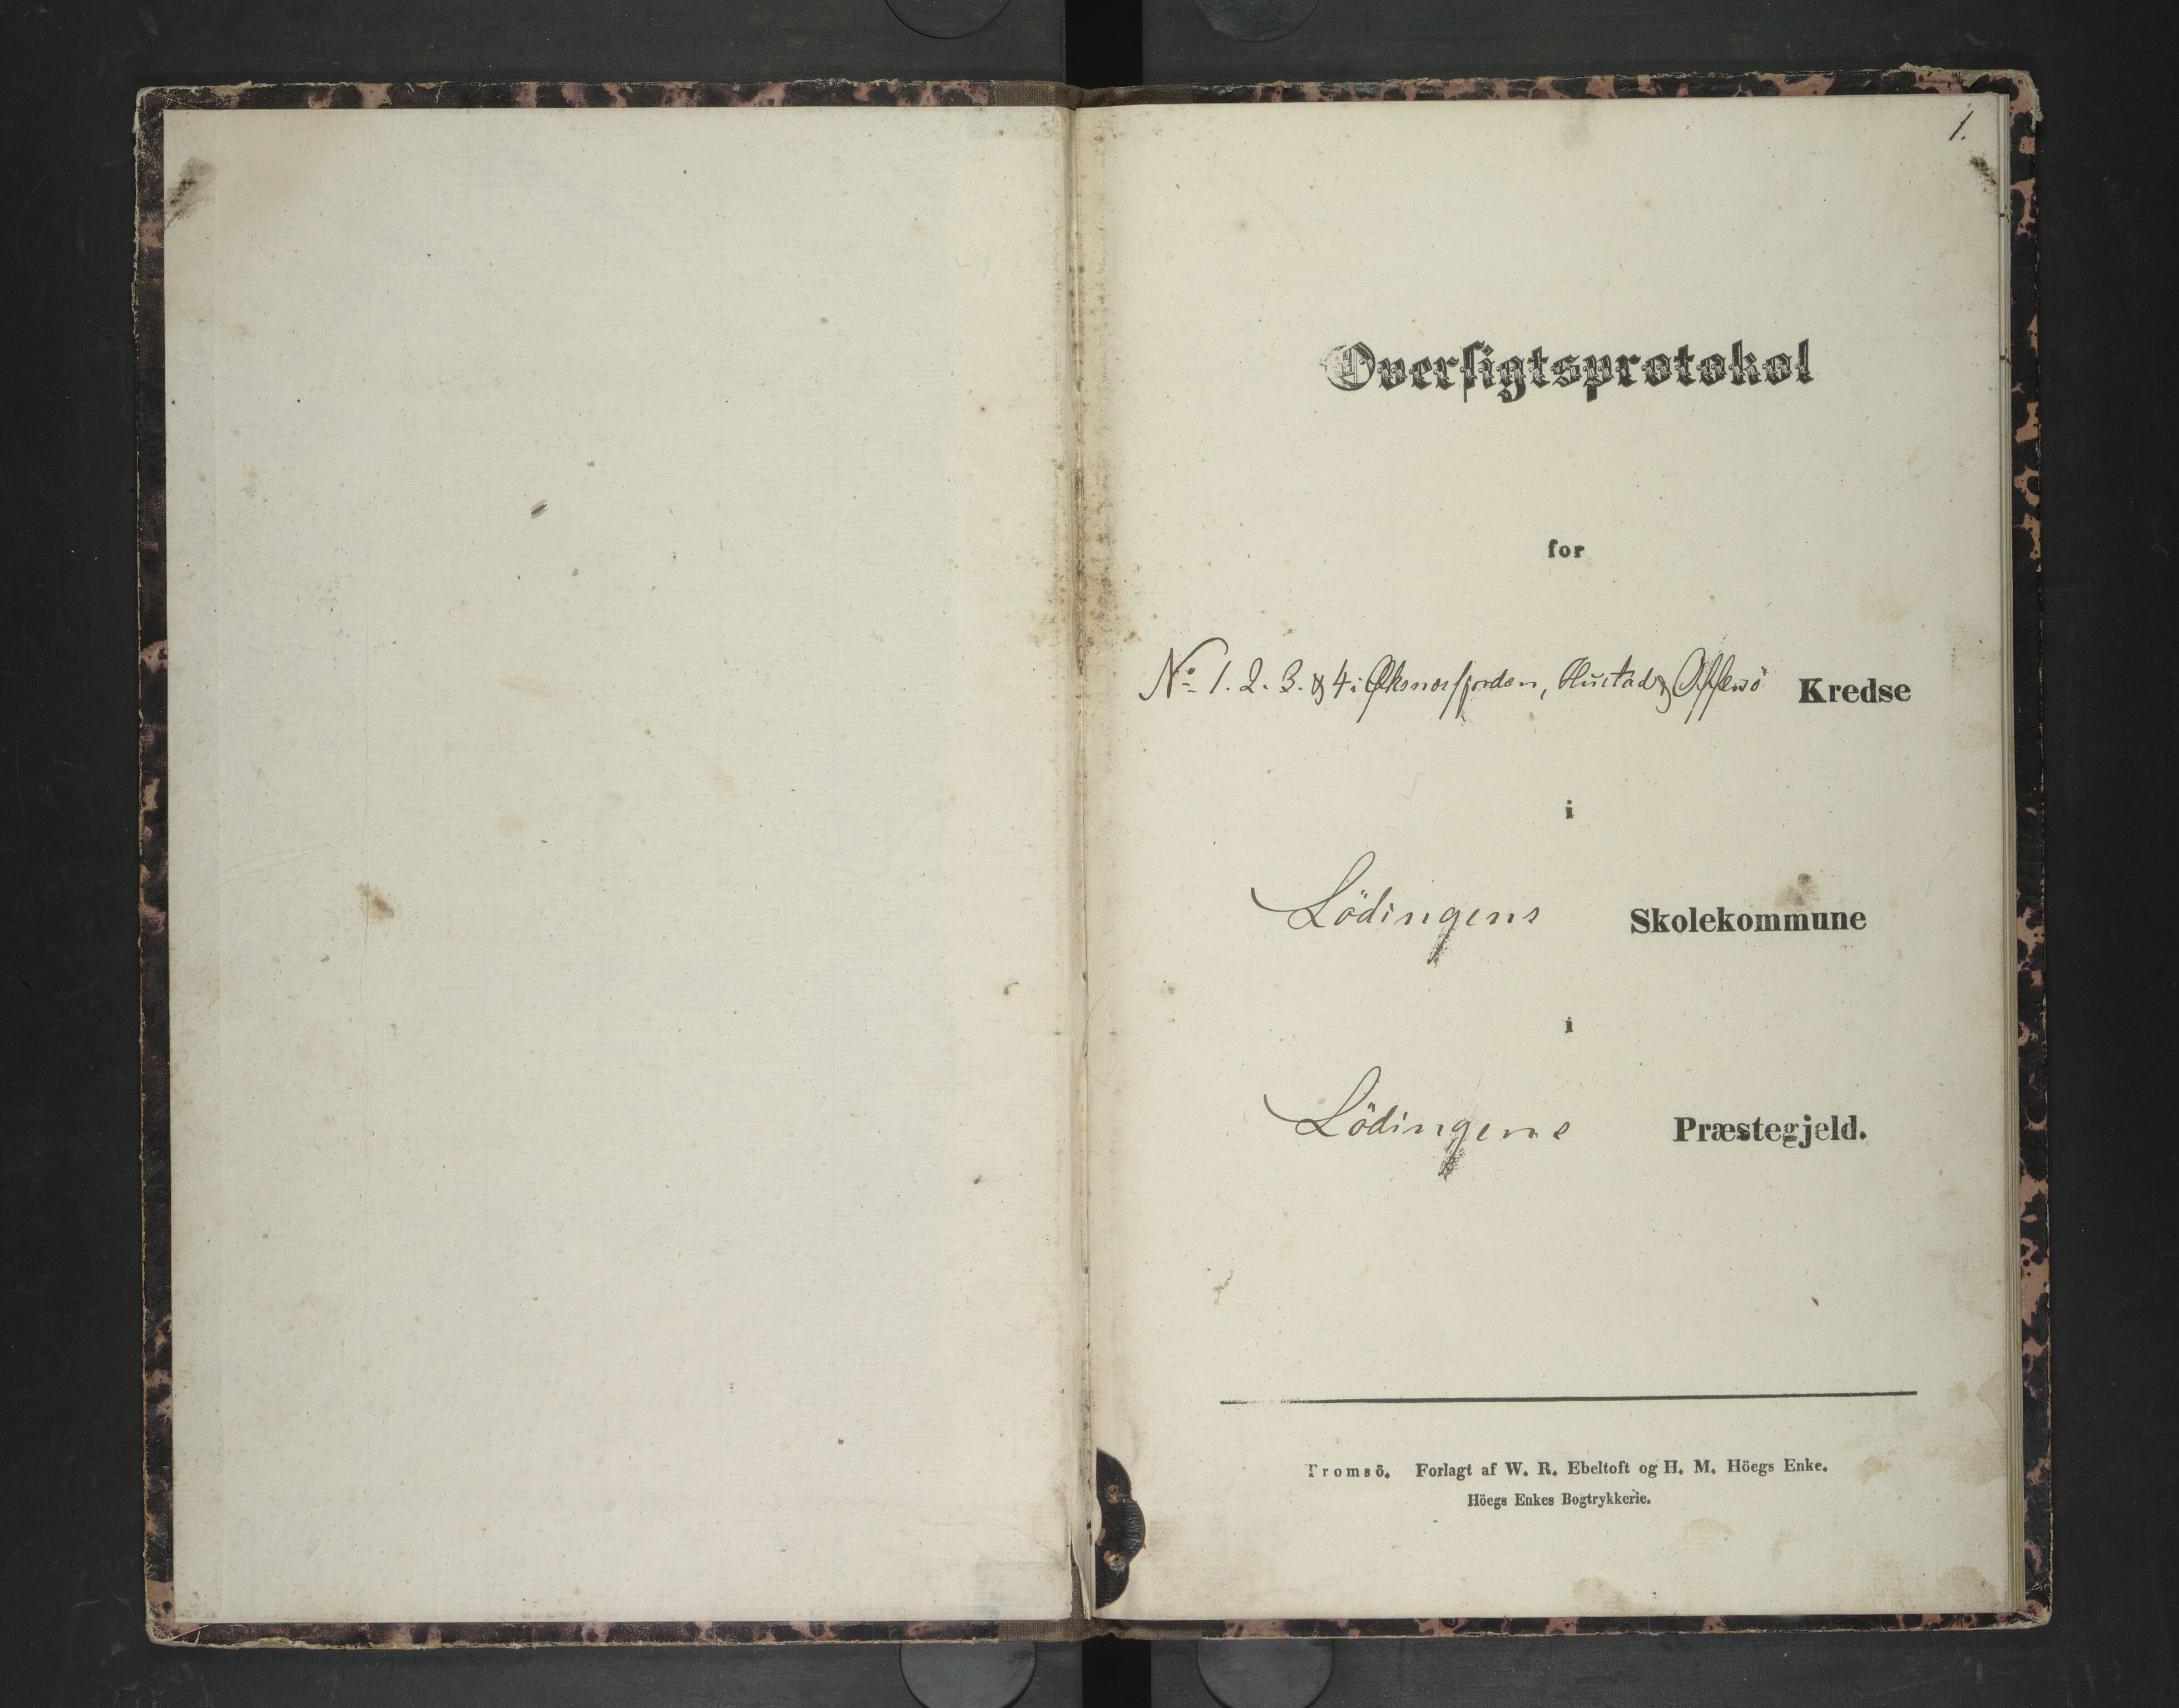 1.
Oversigtsprotokol
for
No 1. 2. 3. & 4 i Øksnesfjorden, Hustad & Offersö Kredse
i
Lödingens Skolekommune
i
Lödingens Præstegjeld.
Tromsö. Forlagt af W. R. Ebeltoft og H. M. Höegs Enke.
Höegs Enkes Bogtrykkerie.